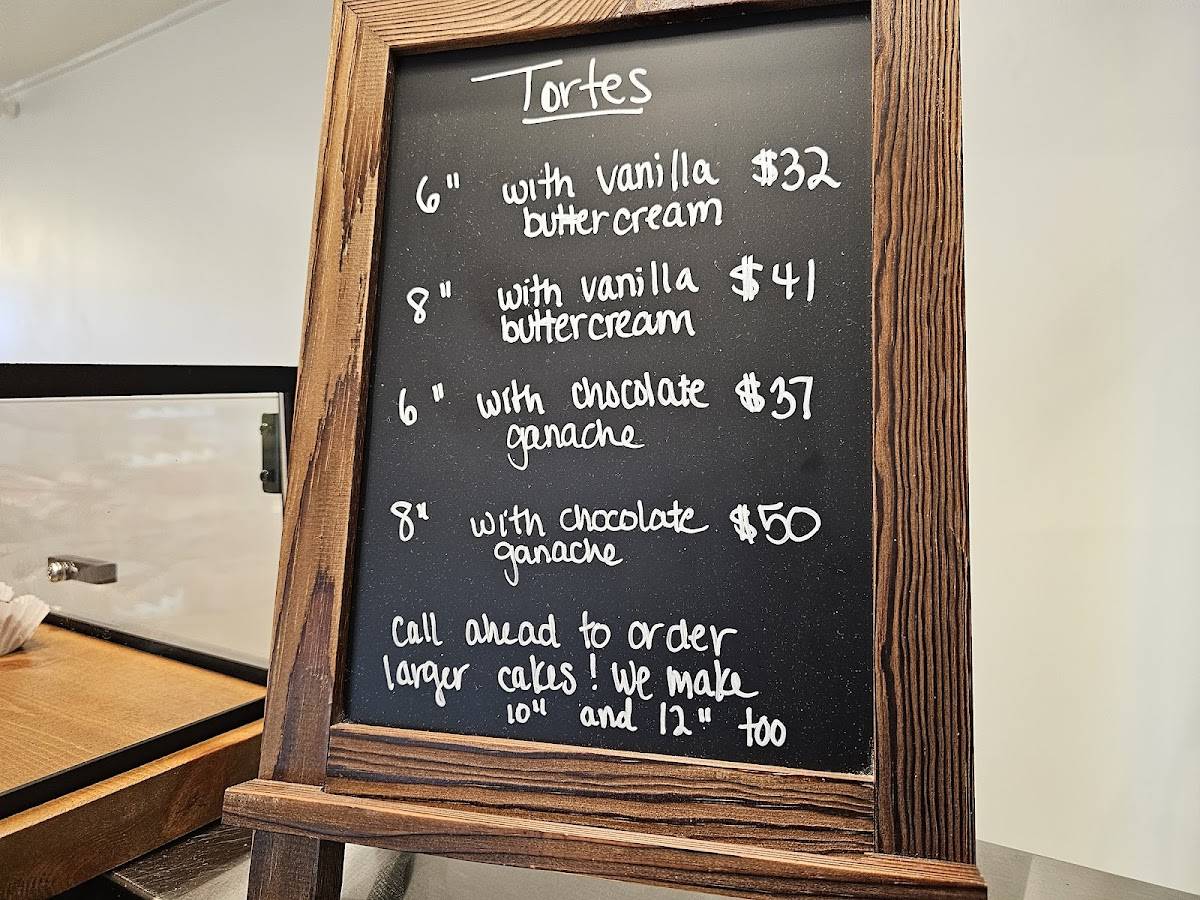 Tortes
6" with vanilla $32
buttercream
8" with vanilla $41
buttercream
6" with chocolate $37
ganache
8" with chocolate $50
ganache
Call ahead to order
larger cakes! We make
10" and 12" too